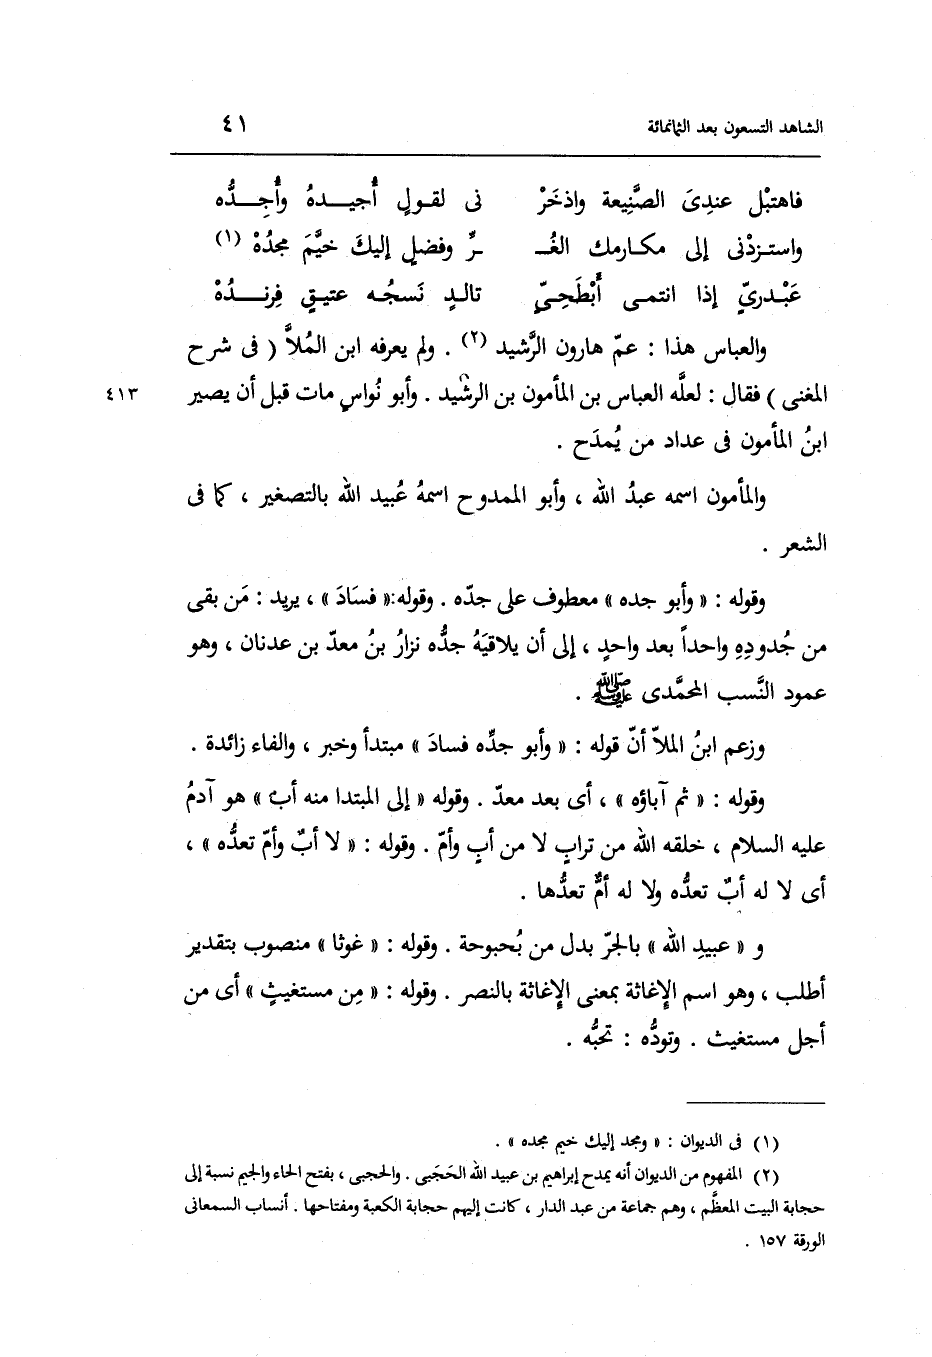 الشاهد التسعون بعد الثمانمائة ٤١
فاهتبْل عندِىَ الصَّنِيعة واذخَرْ نى لقـولٍ أُجيـــدهُ وأُجِــــدُّه
واستـزدْنى إلى مكـارمك الغُـــ ــرِّ وفضلٍ إليكَ خيَّمَ مجدُهْ (١)
عَبْـدريّ إذا انتمـى أَبْطَحِـىّ تالـدٍ نَسجُـه عتيـقٍ فِرنـــدُهْ
والعباس هذا : عمّ هارون الرَّشيد (٢) . ولم يعرفه ابن المُلاَّ ( فى شرح
المغنى ) فقال : لعلَّه العباس بن المأمون بن الرشيد . وأبو نُواسٍ مات قبل أن يصير ٤١٣
ابنُ المأمون فى عداد من يُمدَح .
والمأمون اسمه عبدُ الله ، وأبو الممدوح اسمهُ عُبيد الله بالتصغير ، كما فى
الشعر .
وقوله : « وأبو جده » معطوف على جدّه . وقوله:« فسَادَ » ، يريد : مَن بقى
من جُدودِهِ واحداً بعد واحدٍ ، إلى أن يلاقيَهُ جدُّه نزارُ بنُ معدّ بن عدنان ، وهو
عمود النَّسب المحمَّدى ﷺ .
وزعم ابنُ الملاّ أنّ قوله : « وأبو جدِّه فسادَ » مبتدأ وخبر ، والفاء زائدة .
وقوله : « ثم آباؤه » ، أى بعد معدّ . وقوله « إلى المبتدا منه أبٌ » هو آدمُ
عليه السلام ، خلقه الله من ترابٍ لا من أبٍ وأمّ . وقوله : « لا أبٌ وأمّ تعدُّه » ،
أى لا له أبٌ تعدُّه ولا له أمٌّ تعدُّها .
و « عبيدِ الله » بالجرّ بدل من بُحبوحة . وقوله : « غوثا » منصوب بتقدير
أطلب ، وهو اسم الإغاثة بمعنى الإغاثة بالنصر . وقوله : « مِن مستغيثٍ » أى من
أجل مستغيث . وتودُّه : تحبُّه .
(١) فى الديوان : « ومجد إليك خيم مجده » .
(٢) المفهوم من الديوان أنه يمدح إبراهيم بن عبيد الله الحَجَبى . والحجبى ، بفتح الحاء والجيم نسبة إلى
حجابة البيت المعظَّم ، وهم جماعة من عبد الدار ، كانت إليهم حجابة الكعبة ومفتاحها . أنساب السمعانى
الورقة ١٥٧ .